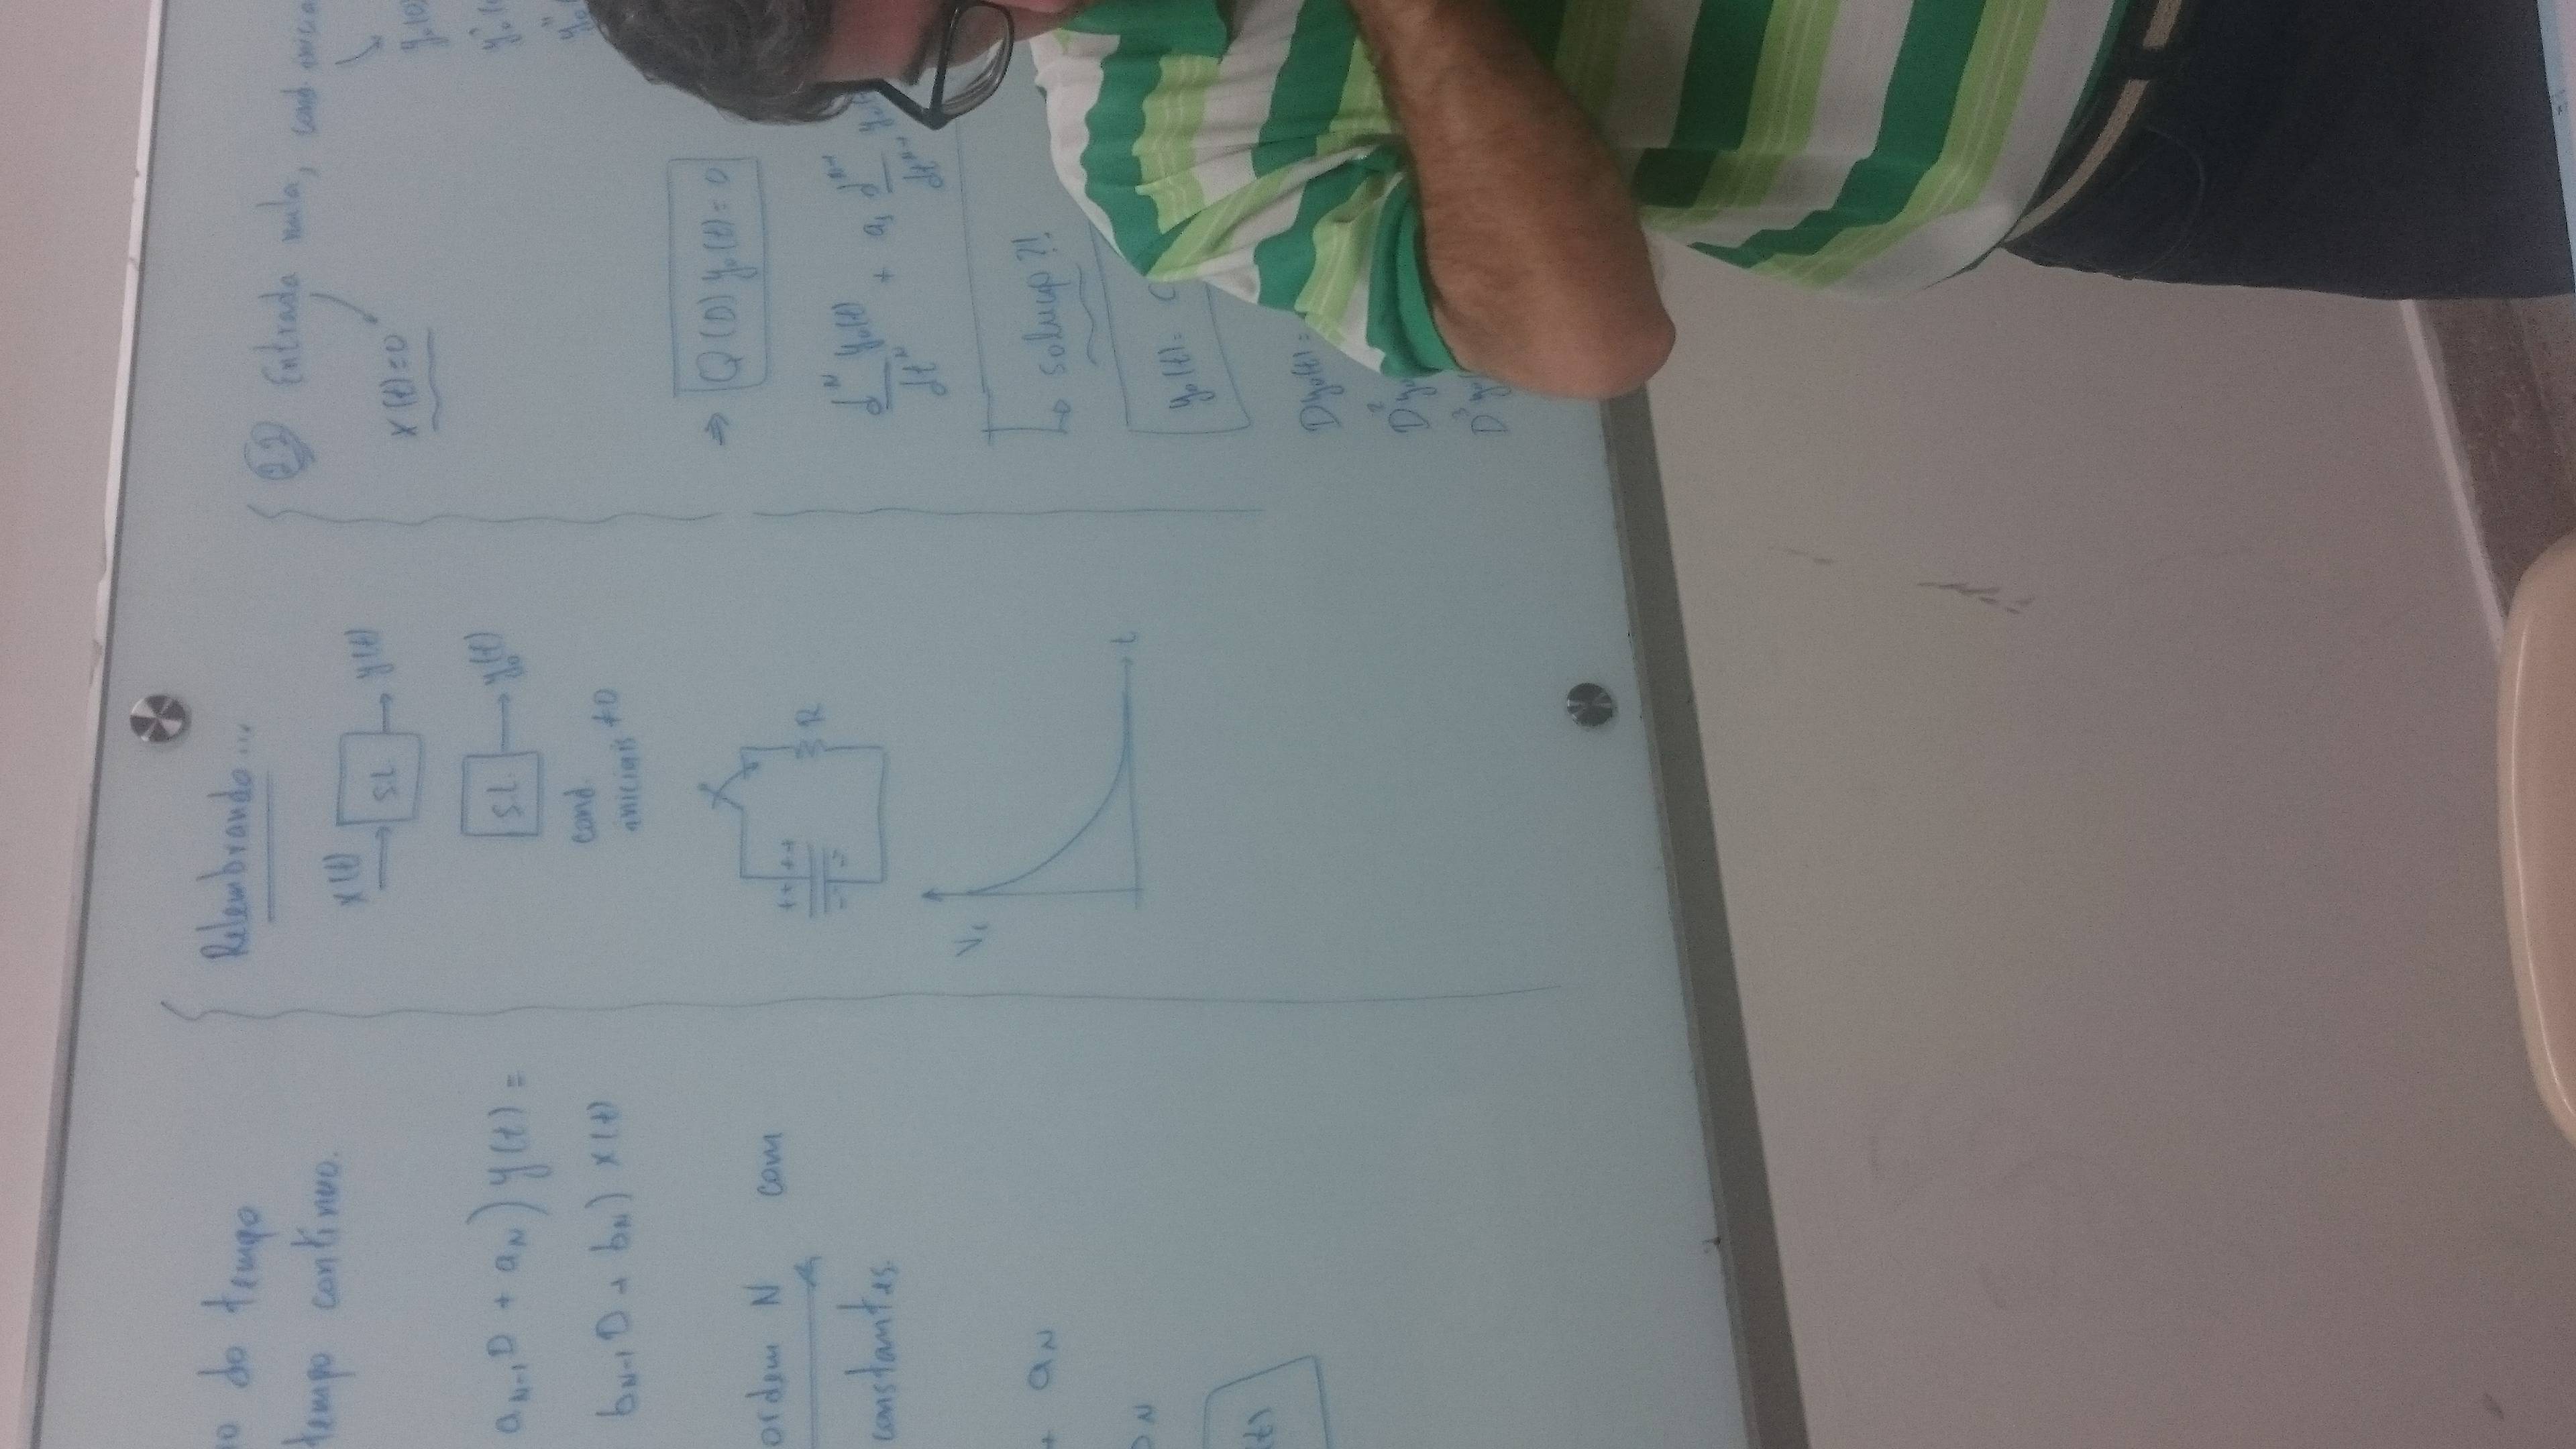 do tempo
tempo contínuo.
aN-1 D + aN) y(t) =
bN-1 D + bN) x(t)
ordem N com
constantes.
+ aN
N
(t)
Relembrando...
x(t) → SL → y(t)
SL → y₀(t)
cond.
iniciais ≠ 0
++ ++
R
Vc
t
2.1 Entrada nula, cond. inicia
x(t)=0
y₀(0)
⇒ Q(D) y₀(t) = 0
d^N y₀(t) / dt^N + a₁ d^N-1 / dt^N-1 y₀
↳ solução?!
y₀(t) = c
D y₀(t) =
D² y₀
D³ y₀